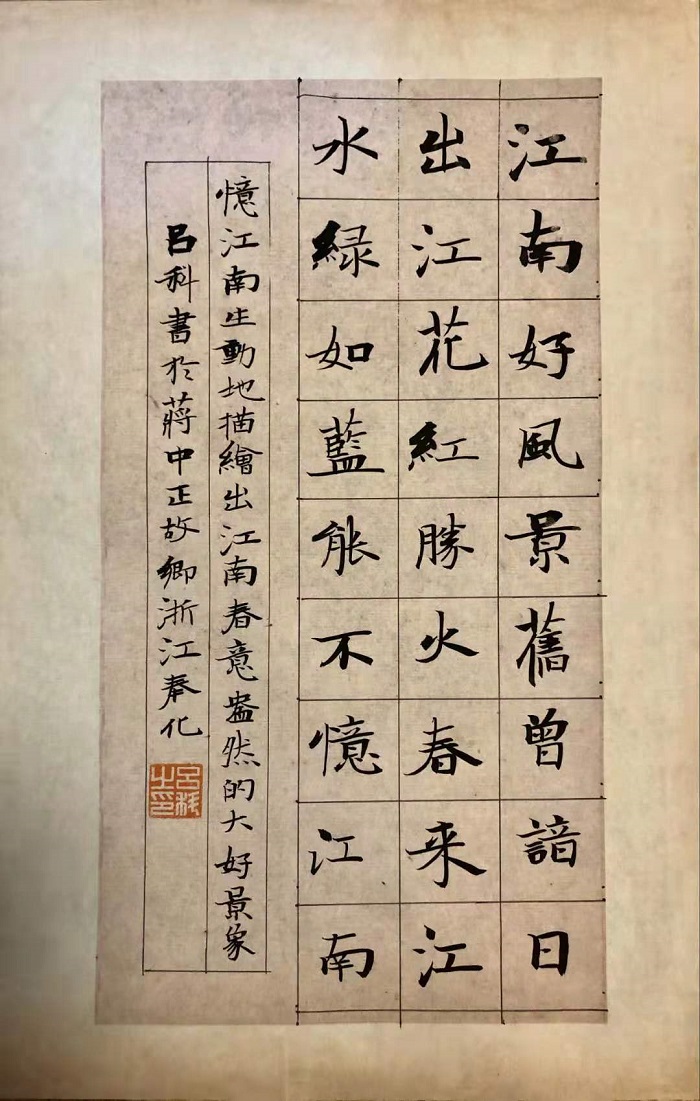 江南好風景舊曾諳日
出江花紅勝火春来江
水緑如藍能不憶江南
憶江南生動地描繪出江南春意盎然的大好景象
吕科書於蔣中正故鄉浙江奉化
吕科之印